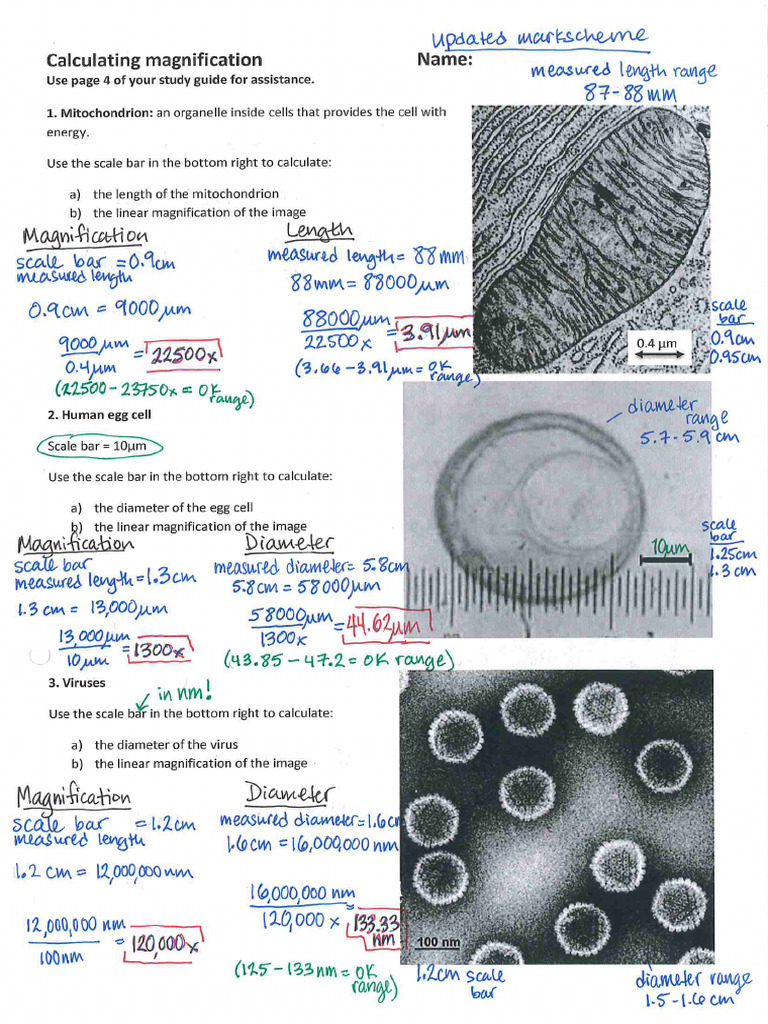 updated markscheme
Calculating magnification
Name:
Use page 4 of your study guide for assistance.
measured length range
87-88mm
1. Mitochondrion: an organelle inside cells that provides the cell with
energy.
Use the scale bar in the bottom right to calculate:
a) the length of the mitochondrion
b) the linear magnification of the image
Magnification
scale bar = 0.9cm
measured length
0.9cm = 9000µm
9000µm
0.4µm
= 22500x
(22500-23750x = OK
range)
Length
measured length = 88mm
88mm = 88000µm
88000µm
22500x
= 3.91µm
(3.66-3.91µm = OK
range)
0.4 µm
scale
bar
0.9cm
0.95cm
2. Human egg cell
Scale bar = 10µm
Use the scale bar in the bottom right to calculate:
a) the diameter of the egg cell
b) the linear magnification of the image
diameter
range
5.7-5.9cm
Magnification
scale bar
measured length = 1.3cm
1.3cm = 13,000µm
13,000µm
10µm
= 1300x
Diameter
measured diameter = 5.8cm
5.8cm = 58000µm
58000µm
1300x
= 44.62µm
(43.85-47.2 = OK range)
10µm
scale
bar
1.25cm
1.3cm
3. Viruses
in nm!
Use the scale bar in the bottom right to calculate:
a) the diameter of the virus
b) the linear magnification of the image
Magnification
scale bar = 1.2cm
measured length
1.2cm = 12,000,000nm
12,000,000 nm
100nm
= 120,000x
Diameter
measured diameter = 1.6cm
1.6cm = 16,000,000nm
16,000,000 nm
120,000x
= 133.33
nm
(125-133nm = OK
range)
100 nm
1.2cm scale
bar
diameter range
1.5-1.6cm